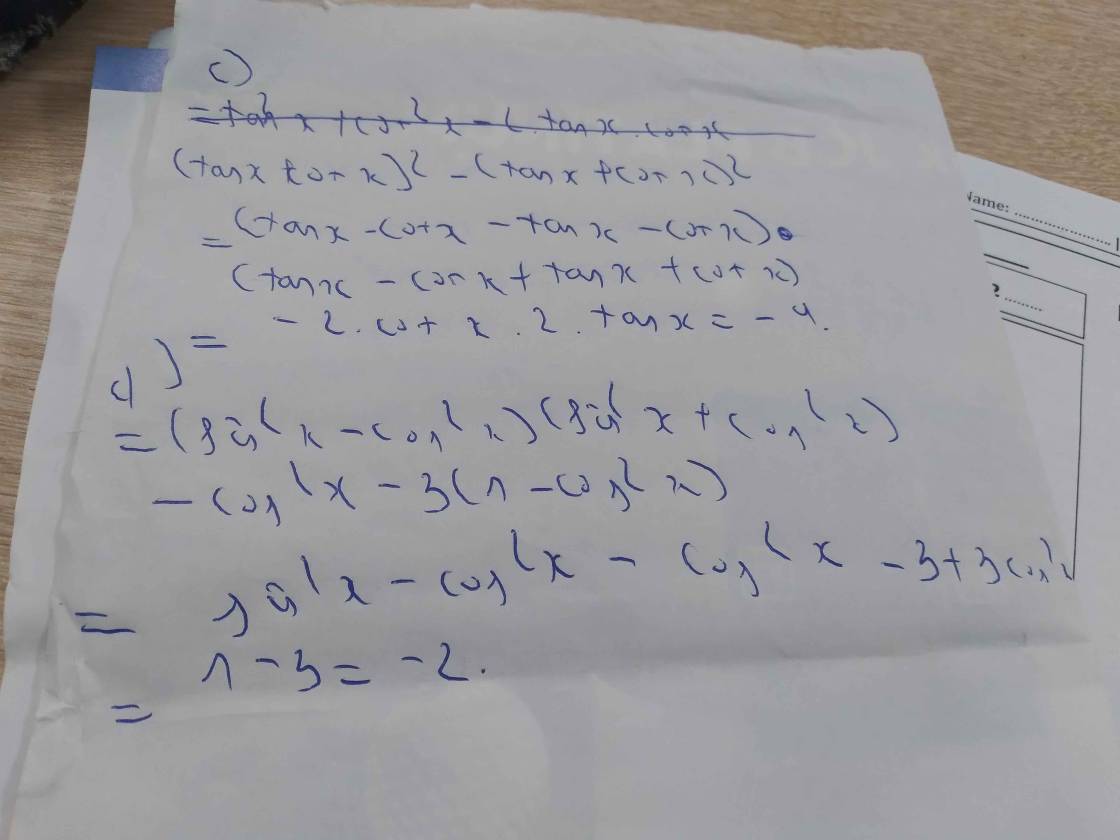 c)
= tan²x + cot²x - 2 . tan x . cot x
(tanx cot x)² - (tan x + cot x)²
= (tanx - cotx - tanx - cotx) .
(tanx - cot x + tanx + cot x)
= - 2 . cot x . 2 . tanx = - 4.
d)
= (sin²x - cos²x)(sin²x + cos²x)
- cos²x - 3(1 - cos²x)
= sin²x - cos²x - cos²x - 3 + 3cos²x
= 1 - 3 = - 2.
Name: ....................
? .........